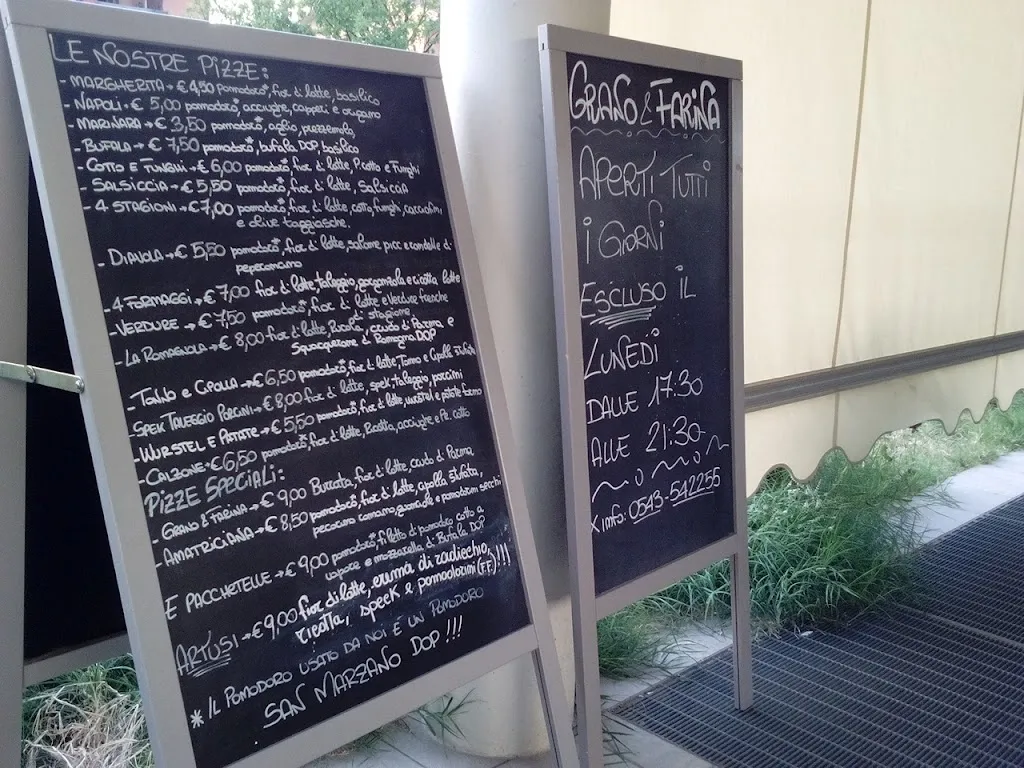 LE NOSTRE PIZZE:
- MARGHERITA → € 4,50 pomodoro*, fior di latte, basilico
- NAPOLI → € 5,00 pomodoro*, acciughe, capperi e origano
- MARINARA → € 3,50 pomodoro*, aglio, prezzemolo
- BUFALA → € 7,50 pomodoro*, bufala DOP, basilico
- COTTO E FUNGHI → € 6,00 pomodoro*, fior di latte, P. cotto e Funghi
- SALSICCIA → € 5,50 pomodoro*, fior di latte, Salsiccia
- 4 STAGIONI → € 7,00 pomodoro*, fior di latte, cotto, funghi, carciofini
e olive taggiasche.
- DIAVOLA → € 5,50 pomodoro*, fior di latte, salame picc e
peperoncino
- 4 FORMAGGI → € 7,00 fior di latte, taleggio, gorgonzola e ricotta
- VERDURE → € 7,50 pomodoro*, fior di latte e Verdure fresche
di stagione
- LA ROMAGNOLA → € 8,00 fior di latte, Rucola, Crudo di Parma e
Squacquerone di Romagna DOP
- TONNO E CIPOLLA → € 6,50 pomodoro*, fior di latte, Tonno e Cipolla stufata
- SPEK TALEGGIO PORCINI → € 8,00 fior di latte, spek, taleggio, porcini
- WURSTEL E PATATE → € 5,50 pomodoro*, fior di latte, wurstel e patate forno
- CALZONE → € 6,50 pomodoro*, fior di latte, Ricotta, acciughe e P. cotto
PIZZE SPECIALI:
- GRANO E FARINA → € 9,00 Burrata, fior di latte, crudo di Parma
- AMATRICIANA → € 8,50 pomodoro*, fior di latte, cipolla stufata,
pecorino romano, guanciale e pomodorini secchi
E PACCHETELLE → € 9,00 pomodoro*, filetto di pomodoro cotto a
vapore e mozzarella di Bufala DOP
ARTUSI → € 9,00 fior di latte, crema di radicchio,
ricotta, speek e pomodorini (FF.)!!!
* IL POMODORO USATO DA NOI È UN POMODORO
SAN MARZANO DOP !!!
GRANO & FARINA
APERTI TUTTI
I GIORNI
ESCLUSO IL
LUNEDI
DALLE 17:30
ALLE 21:30
X info: 0543-542255